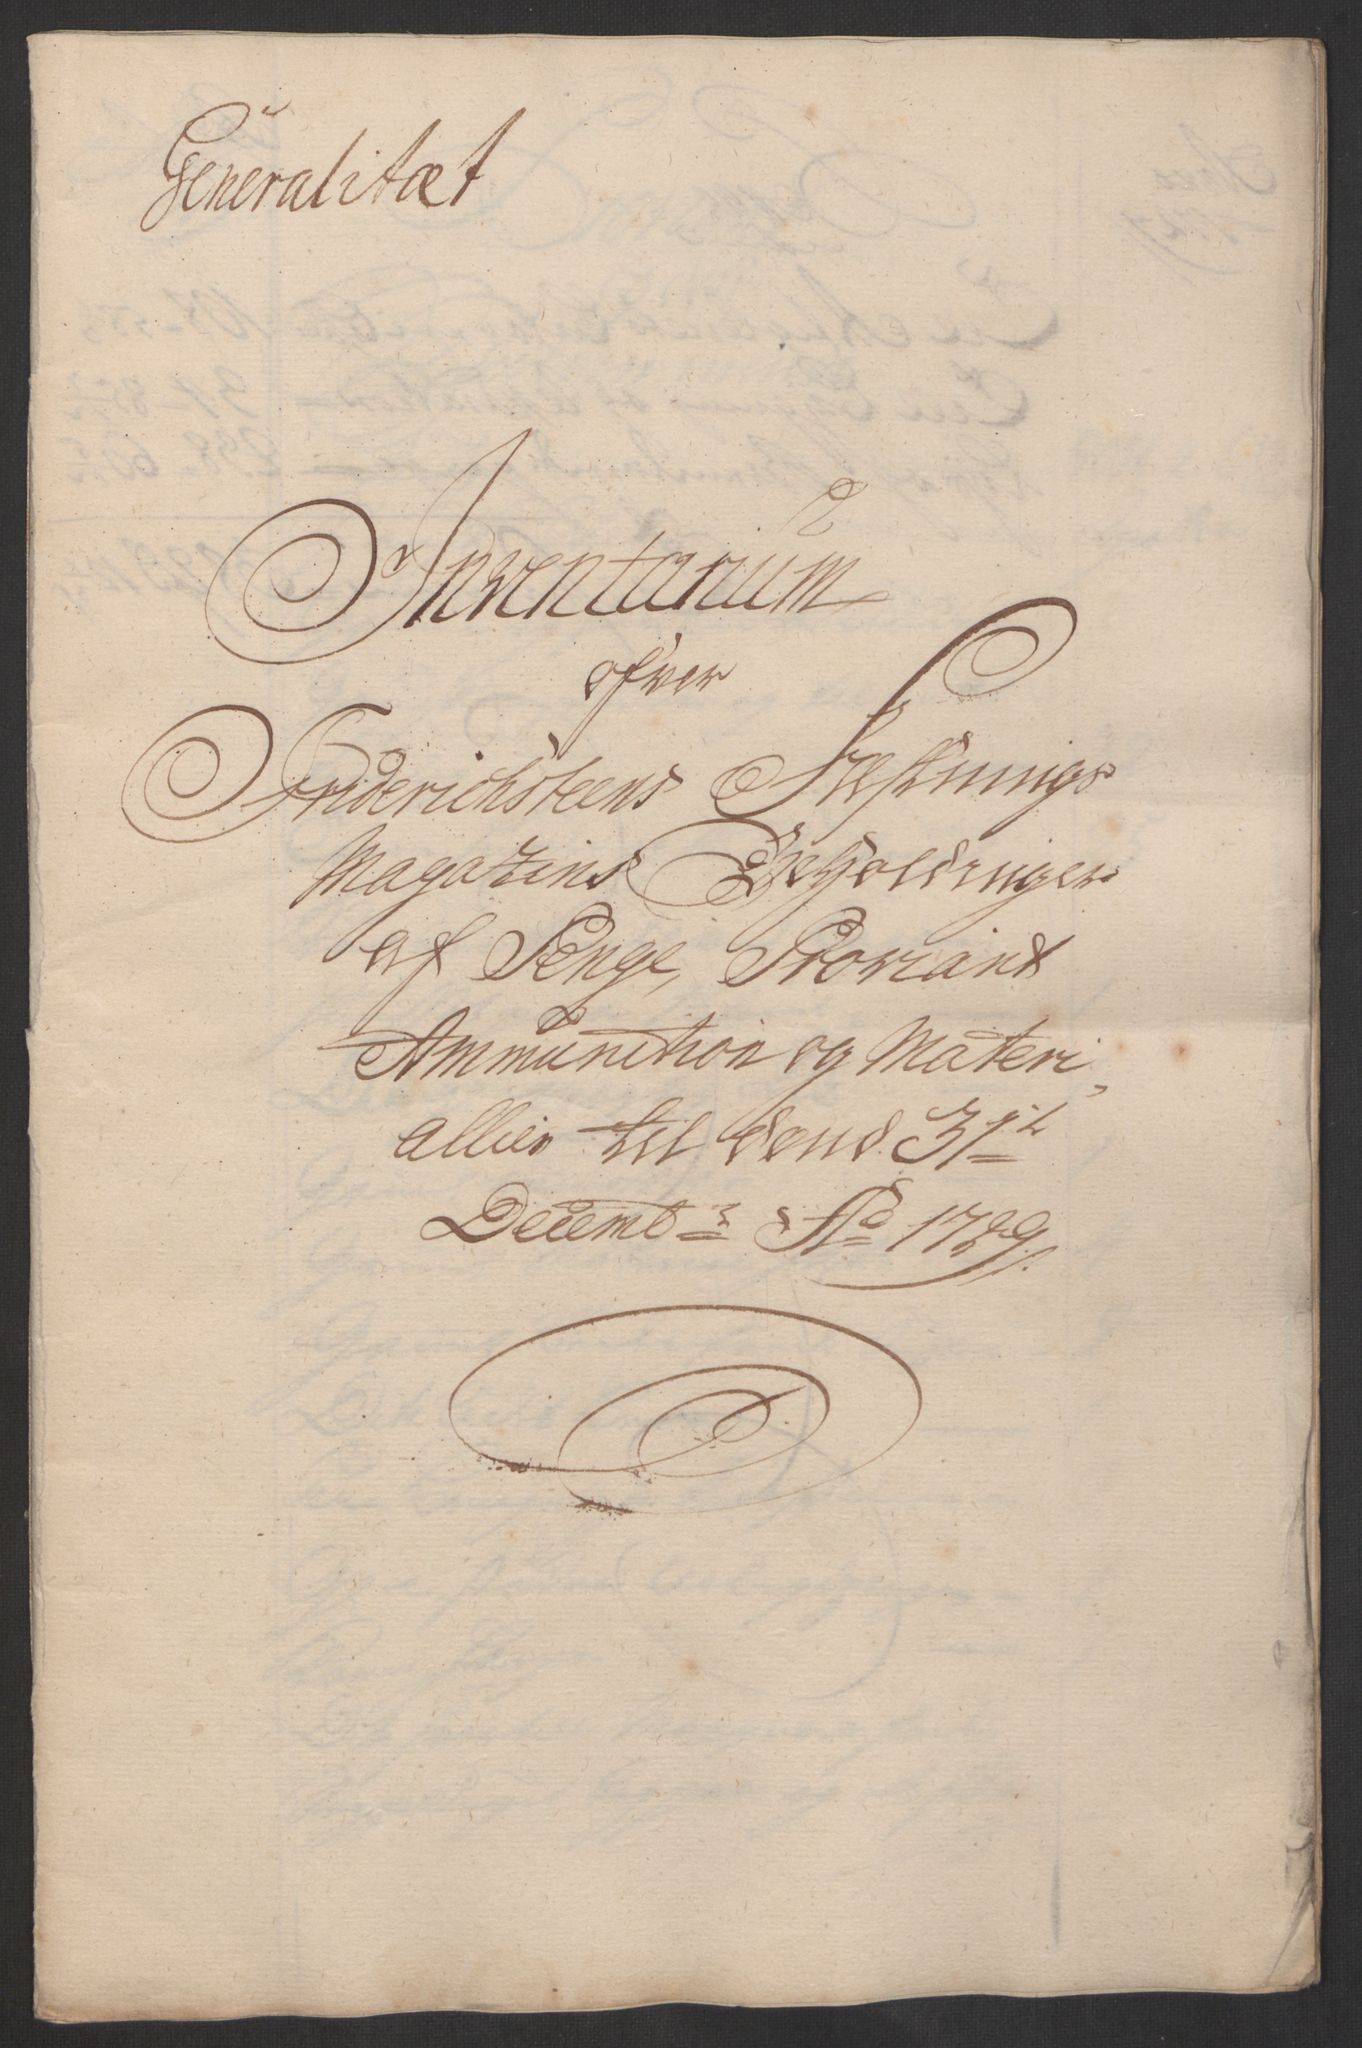 Generalitæt
Inventarium
ofver
Friderichsteens Fæstnings
Magazins Beholdninger
af Penge, Proviant
Ammunition og Materi,
allier til dend 31te
Decembr Ao 1729.